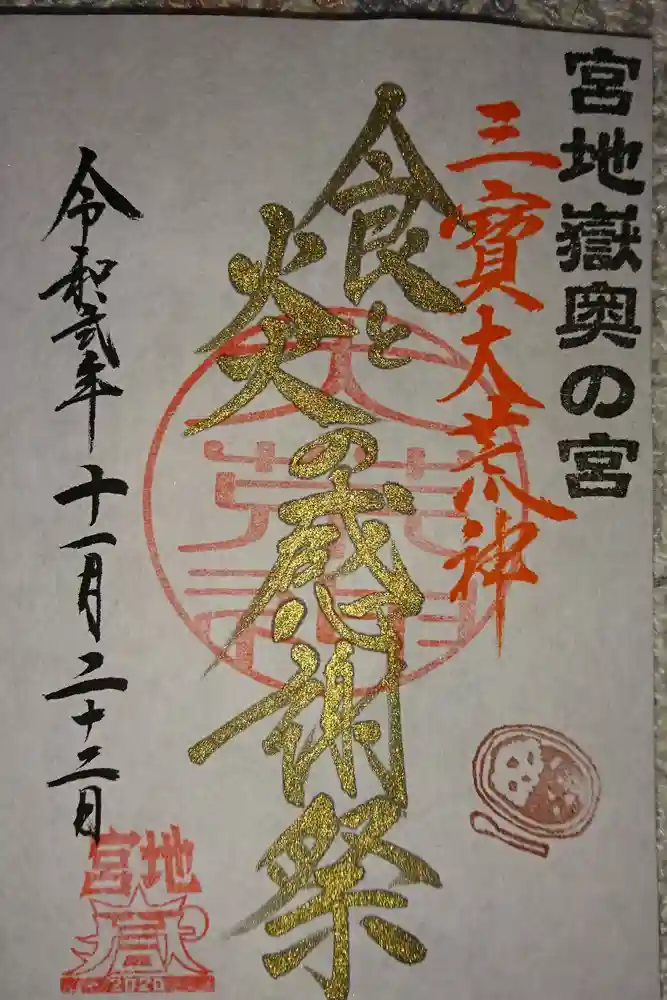 宮地嶽奥の宮
三寳大荒神
食と
火の感謝祭
令和弐年 十一月二十二日
宮地
嶽
2020